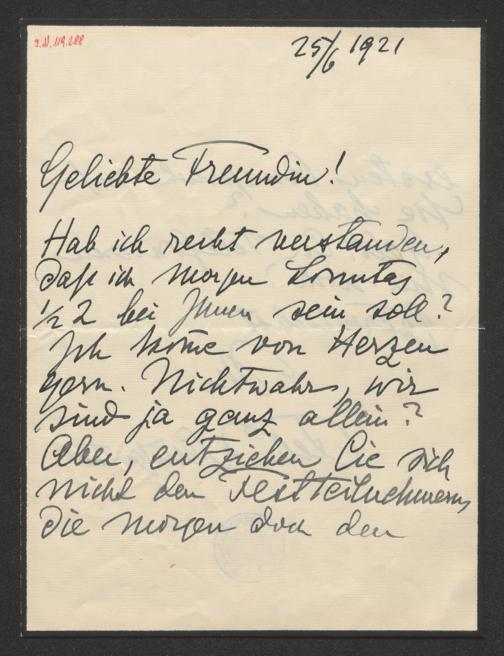 I.N. 119.288
25/6 1921
Geliebte Freundin!
Hab ich recht verstanden,
daß ich morgen Sonntag
½ 2 bei Ihnen sein soll?
Ich kom̄e von Herzen
gern. Nichtwahr, wir
sind ja ganz allein?
Aber, entziehen Sie sich
nicht den Festteilnehmern,
die morgen doch den